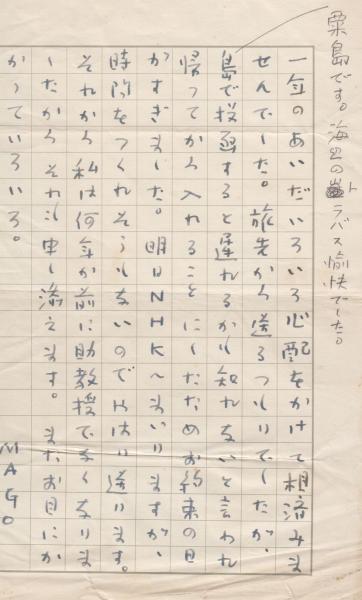 粟島です。海上のトラバス愉快でした。
一年のあいだいろいろ心配をかけて相済みま
せんでした。旅先から送るつもりでしたが、
島で投函すると遅れるかも知れないと言われ
帰ってから入れることにしたためお約束の日
がすぎました。明日NHKへまいりますが、
時間をつくれそうもないのでやはり送ります。
それから私は何年か前に助教授でなくなりま
したからそれも申し添えます。またお目にか
かっていろいろ。
MAGO